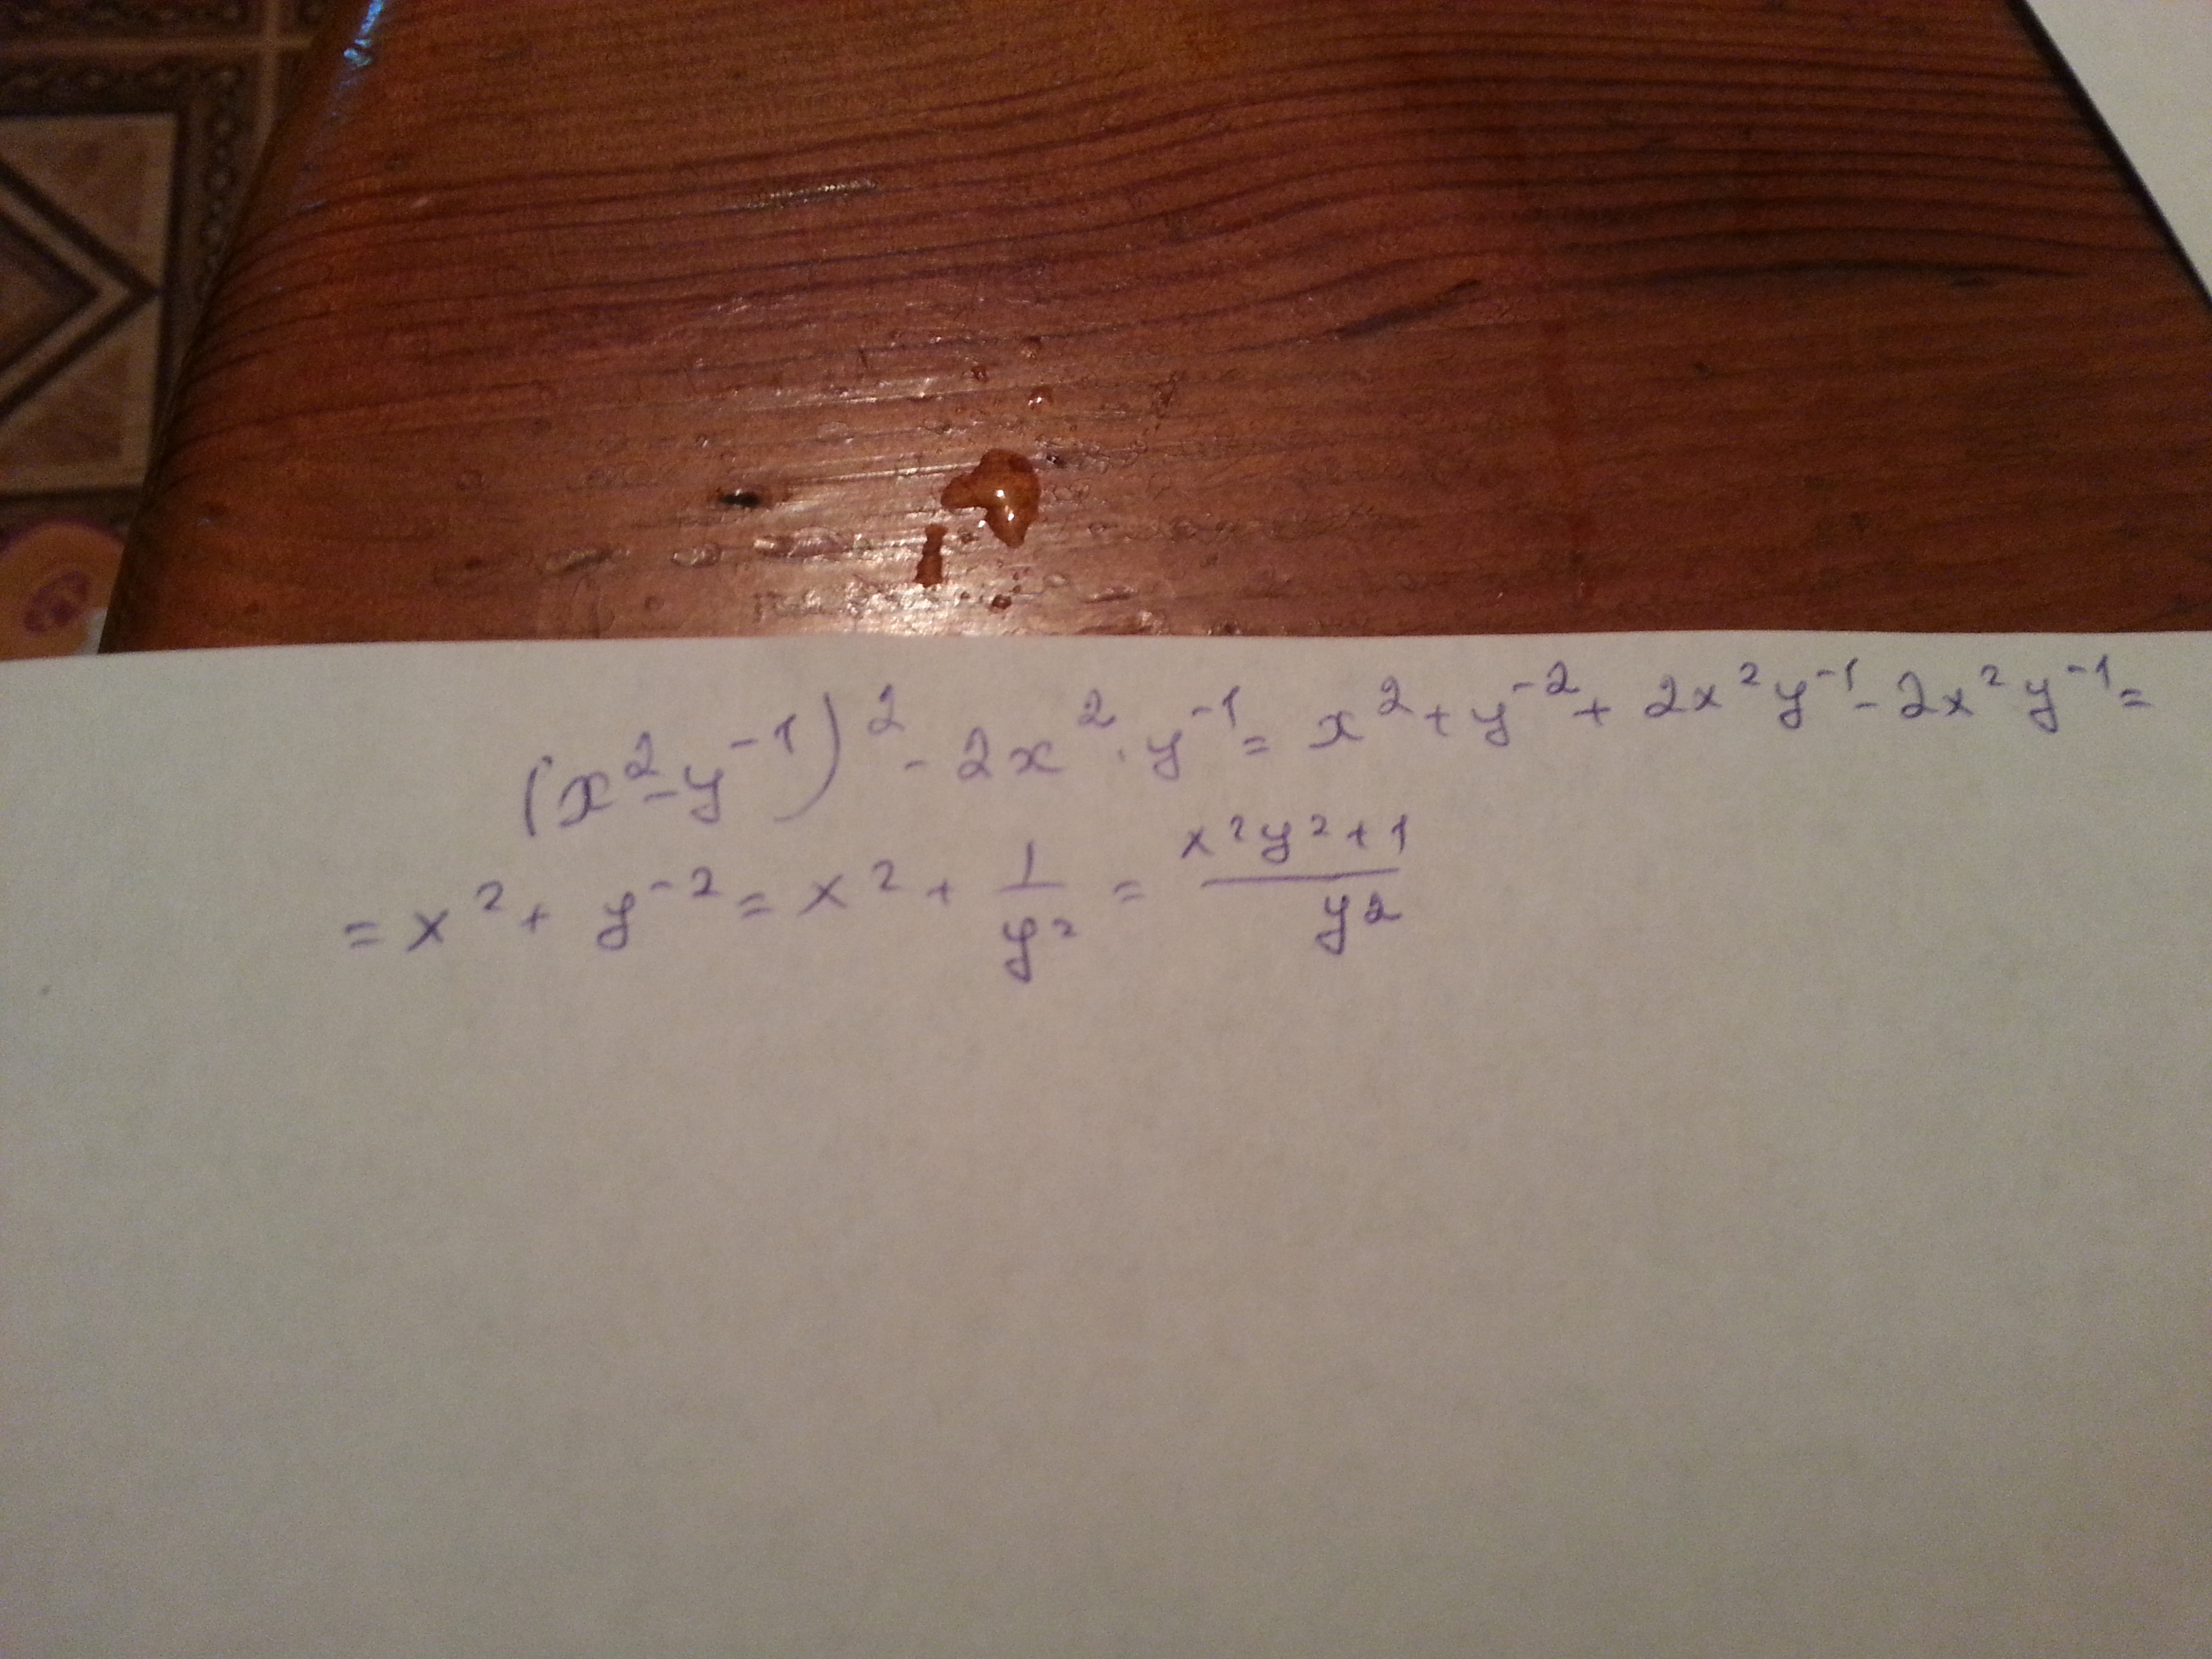 (x²-y⁻¹)² - 2x²·y⁻¹ = x² + y⁻² + 2x²y⁻¹ - 2x²y⁻¹ =
= x² + y⁻² = x² + 1/y² = (x²y²+1)/y²